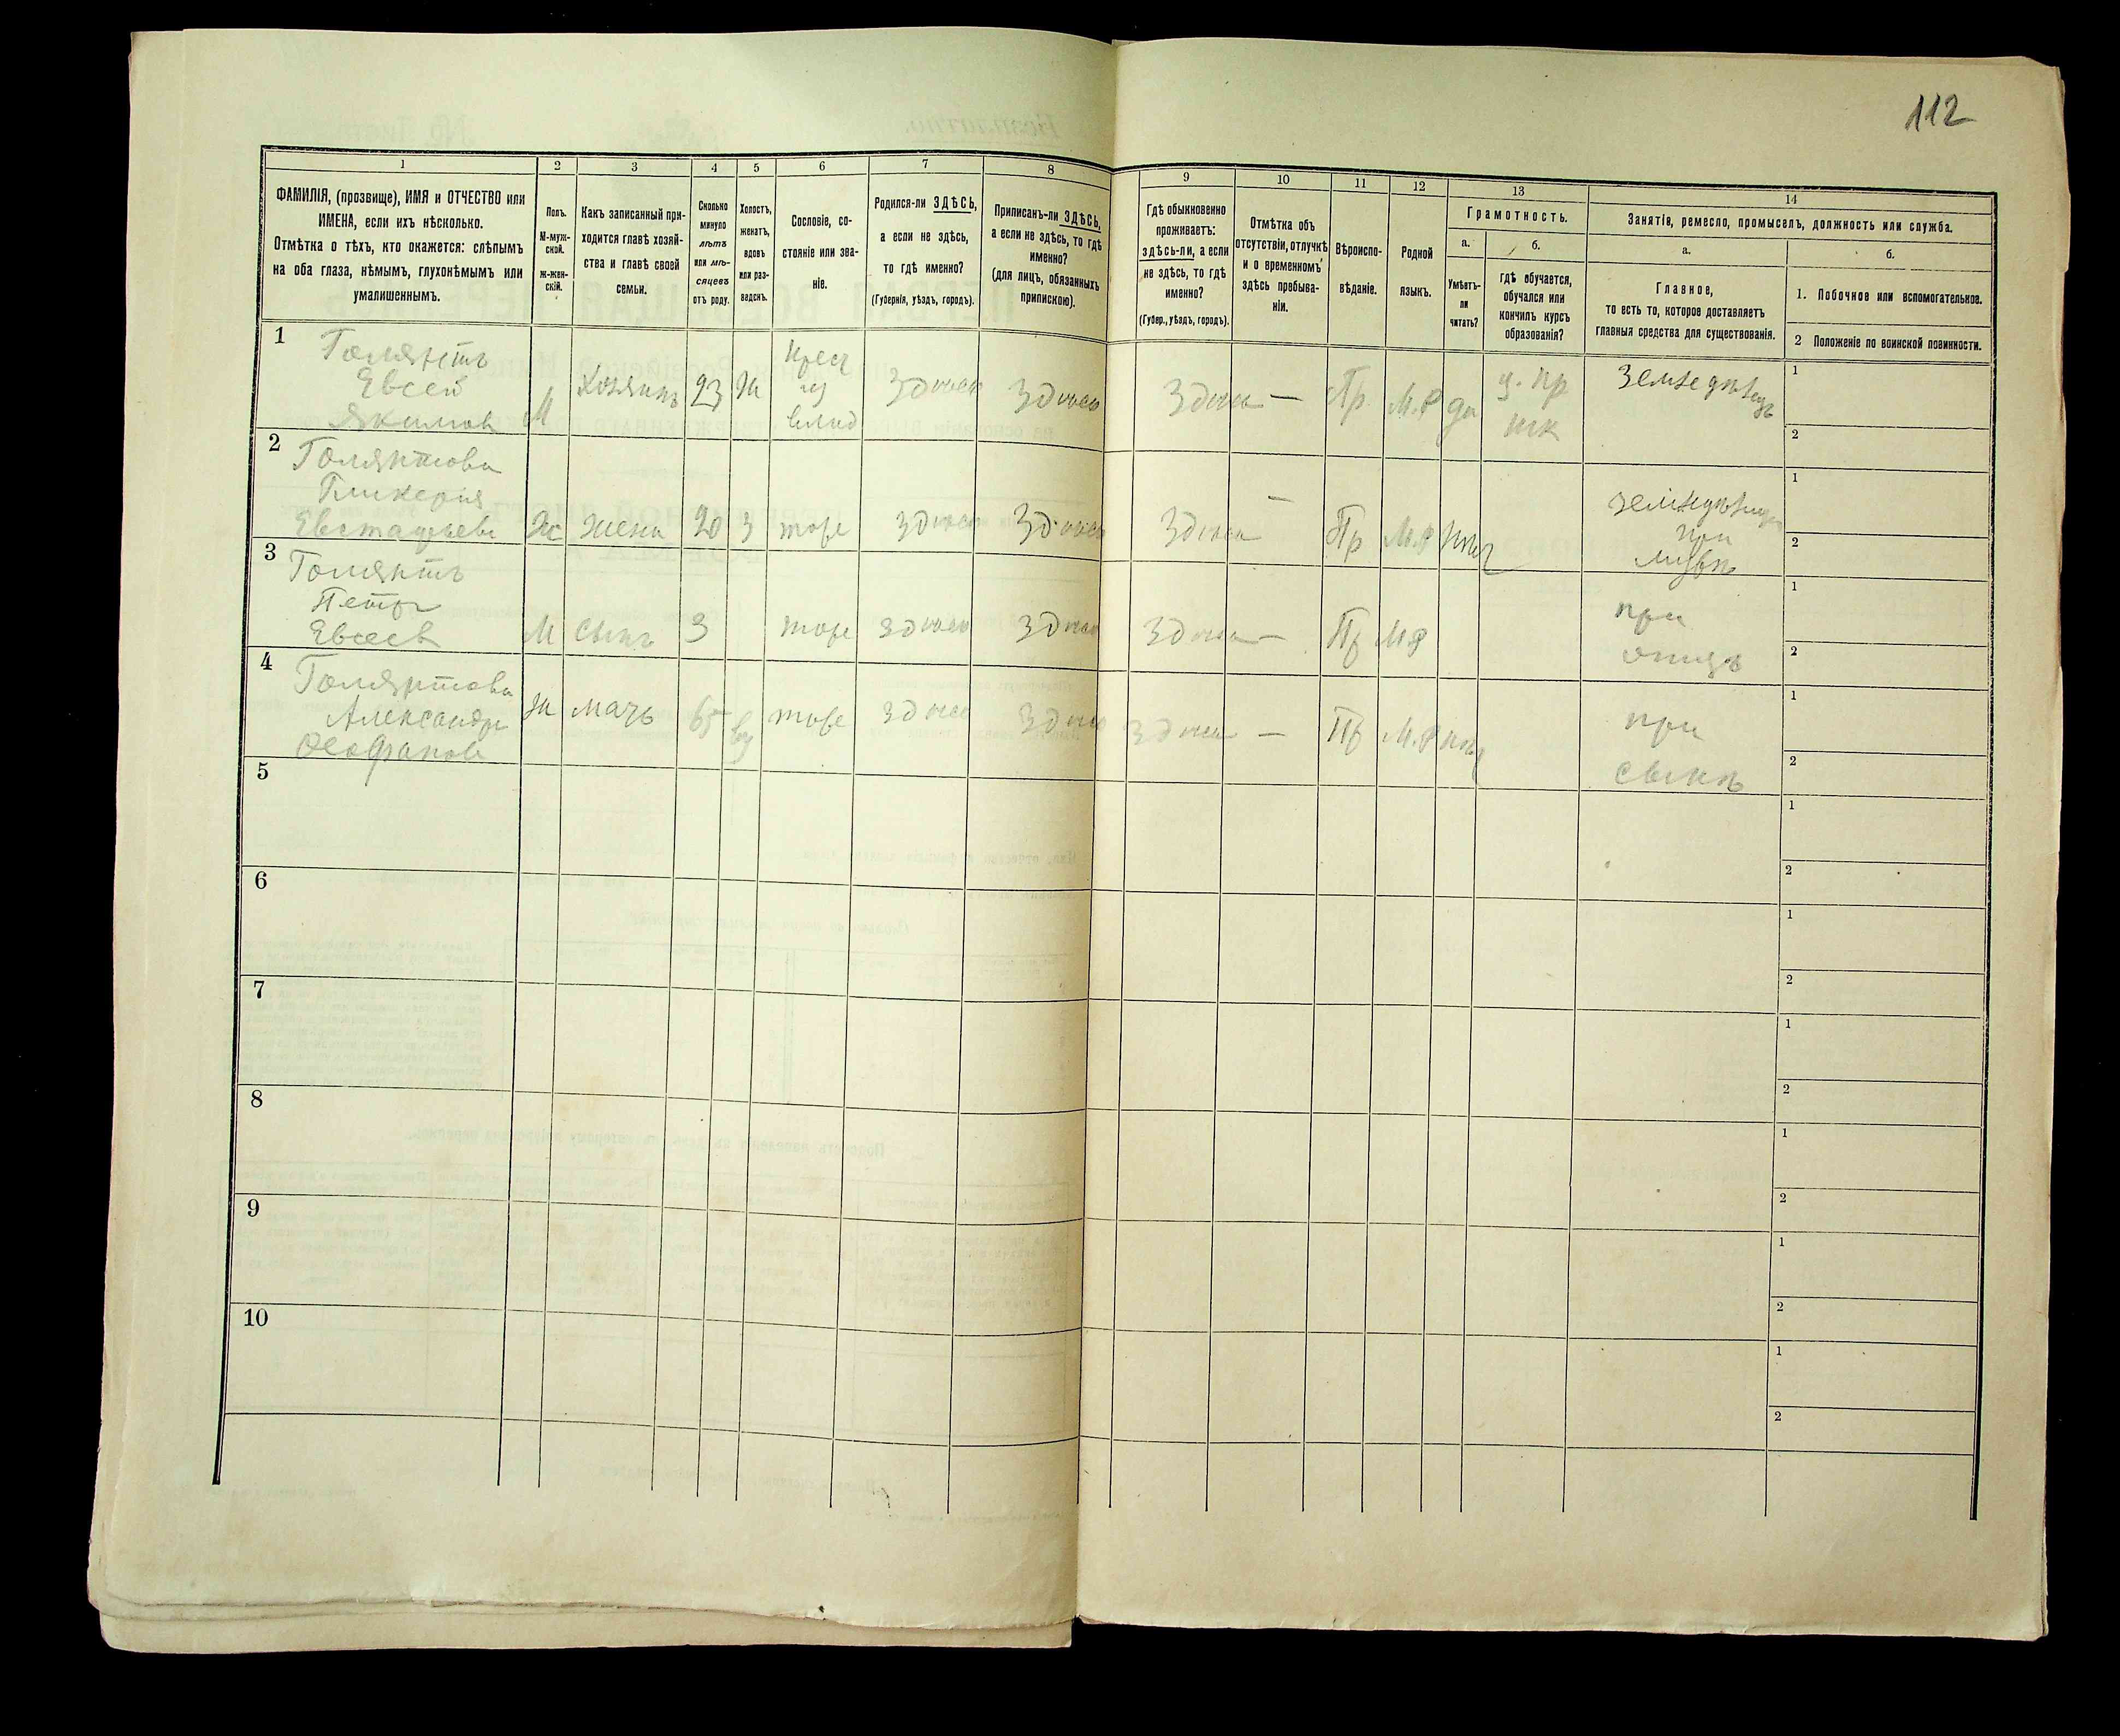 112
1
2
3
4
5
6
7
8
9
10
11
12
13
14
ФАМИЛІЯ, (прозвище), ИМЯ и ОТЧЕСТВО или
ИМЕНА, если ихъ нѣсколько.
Отмѣтка о тѣхъ, кто окажется: слѣпымъ
на оба глаза, нѣмымъ, глухонѣмымъ или
умалишеннымъ.
Полъ.
М-муж-
ской.
Ж-жен-
скій.
Какъ записанный при-
ходится главѣ хозяй-
ства и главѣ своей
семьи.
Сколько
минуло
лѣтъ
или мѣ-
сяцевъ
отъ роду.
Холостъ,
женатъ,
вдовъ
или раз-
веденъ.
Сословіе, со-
стояніе или зва-
ніе.
Родился-ли ЗДѢСЬ,
а если не здѣсь,
то гдѣ именно?
(Губернія, уѣздъ, городъ).
Приписанъ-ли ЗДѢСЬ,
а если не здѣсь, то гдѣ
именно?
(для лицъ, обязанныхъ
припискою).
Гдѣ обыкновенно
проживаетъ:
здѣсь-ли, а если
не здѣсь, то гдѣ
именно?
(Губер., уѣздъ, городъ).
Отмѣтка объ
отсутствіи, отлучкѣ
и о временномъ
здѣсь пребыва-
ніи.
Вѣроиспо-
вѣданіе.
Родной
языкъ.
Грамотность.
а.
Умѣетъ-
ли
читать?
б.
гдѣ обучается,
обучался или
кончилъ курсъ
образованія?
Занятія, ремесло, промыселъ, должность или служба.
а.
Главное,
то есть то, которое доставляетъ
главныя средства для существованія.
б.
1. Побочное или вспомогательное.
2 Положеніе по воинской повинности.
1
Голянтъ
Евсей
Якимов
М
Хозяинъ
23
Ж
Крес
из
влад
Здѣсь
Здѣсь
Здѣсь
—
Пр
М.Р
да
ц. пр
шк
земледѣлецъ
1
2
2
Голянтова
Гликерія
Евстафьева
Ж
жена
20
З
тоже
Здѣсь
Здѣсь
Здѣсь
—
Пр
М.Р
нѣт
при
мужѣ
1
2
3
Голянтъ
Петръ
Евсеев
М
сынъ
3
тоже
здѣсь
здѣсь
здѣсь
—
Пр
М Р
при
отцѣ
1
2
4
Голянтова
Александра
Феофанова
Ж
мать
65
вд
тоже
здѣсь
здѣсь
здѣсь
—
Пр
М.Р
нѣт
при
сынѣ
1
2
5
1
2
6
1
2
7
1
2
8
1
2
9
1
2
10
1
2